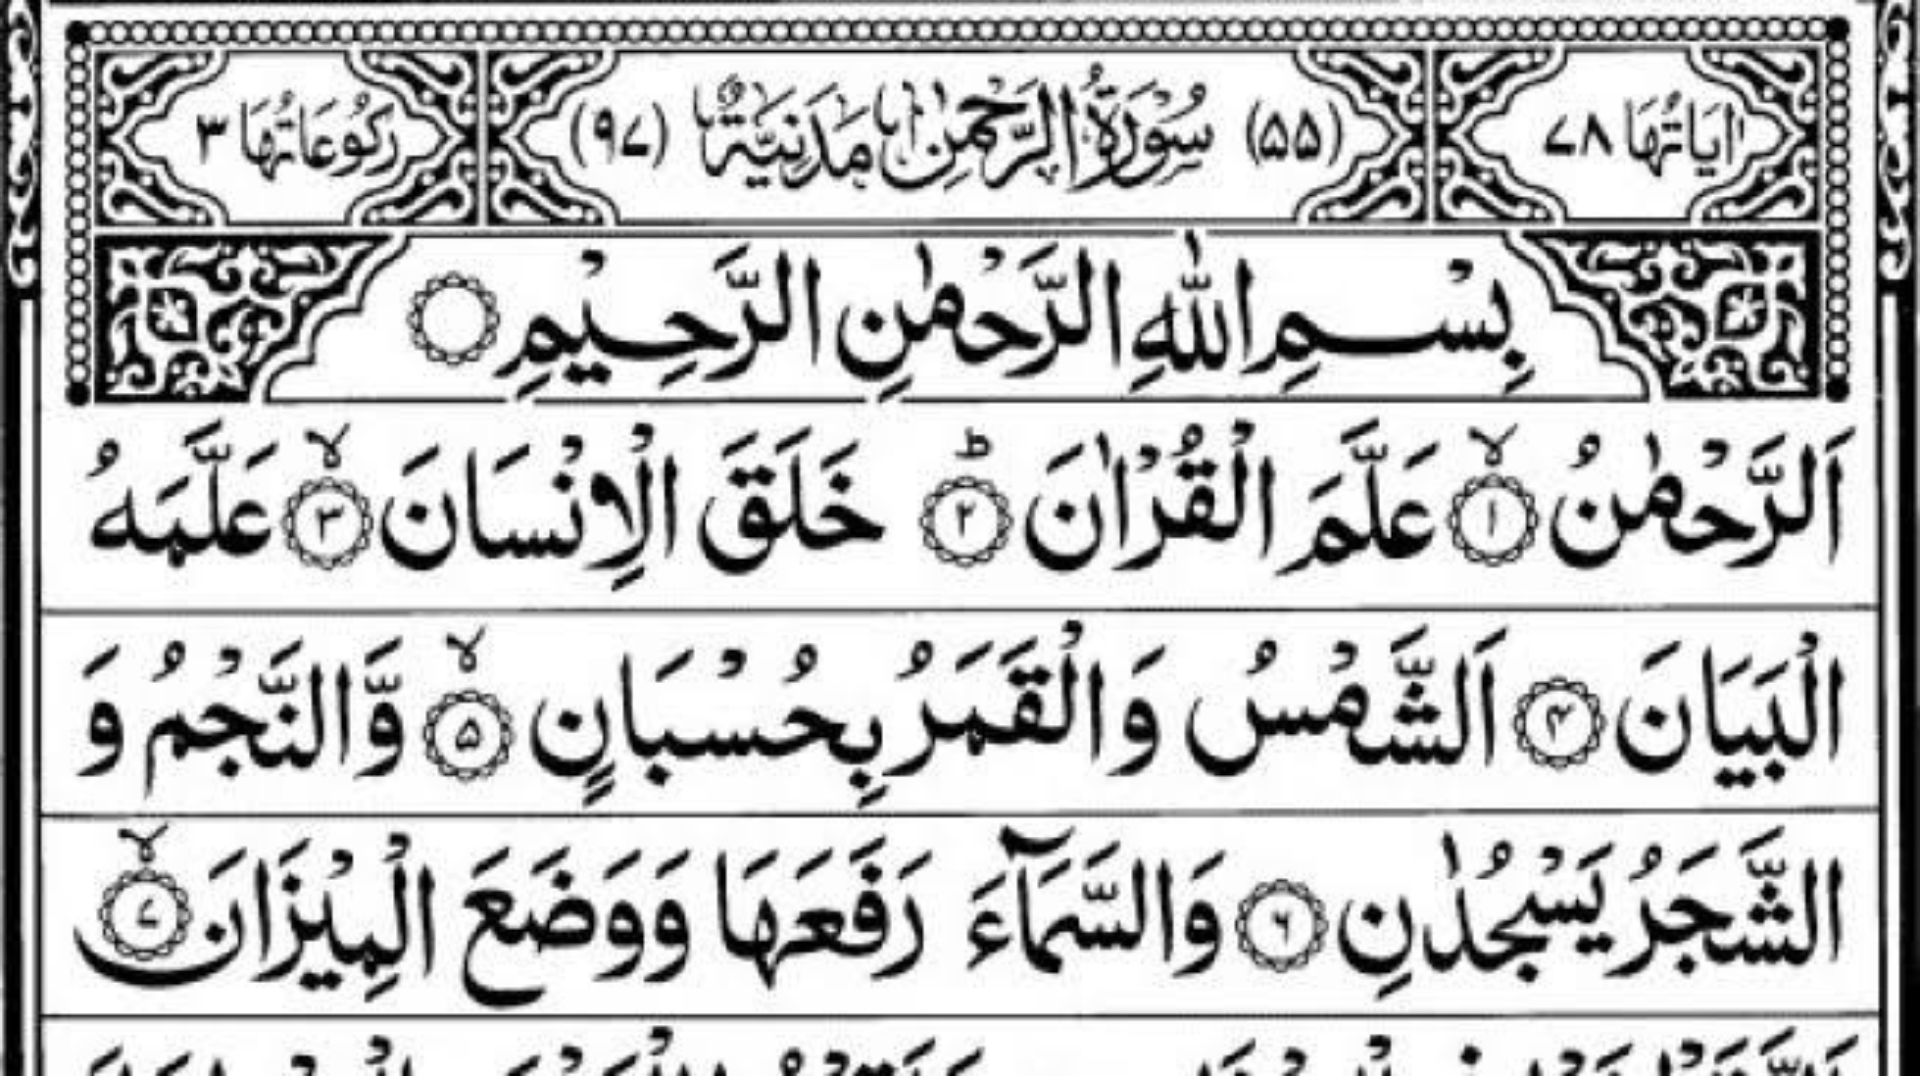 اٰيَاتُهَا ٧٨ (٥٥) سُوْرَةُ الرَّحْمٰنِ مَدَنِيَّةٌ (٩٧) رُكُوْعَاتُهَا ٣
بِسْمِ اللّٰهِ الرَّحْمٰنِ الرَّحِيْمِ
اَلرَّحْمٰنُ ۙ﴿١﴾ عَلَّمَ الْقُرْاٰنَ ؕ﴿٢﴾ خَلَقَ الْاِنْسَانَ ۙ﴿٣﴾ عَلَّمَهُ
الْبَيَانَ ﴿٤﴾ اَلشَّمْسُ وَالْقَمَرُ بِحُسْبَانٍ ۙ﴿٥﴾ وَّالنَّجْمُ وَ
الشَّجَرُ يَسْجُدٰنِ ﴿٦﴾ وَالسَّمَآءَ رَفَعَهَا وَوَضَعَ الْمِيْزَانَ ۙ﴿٧﴾